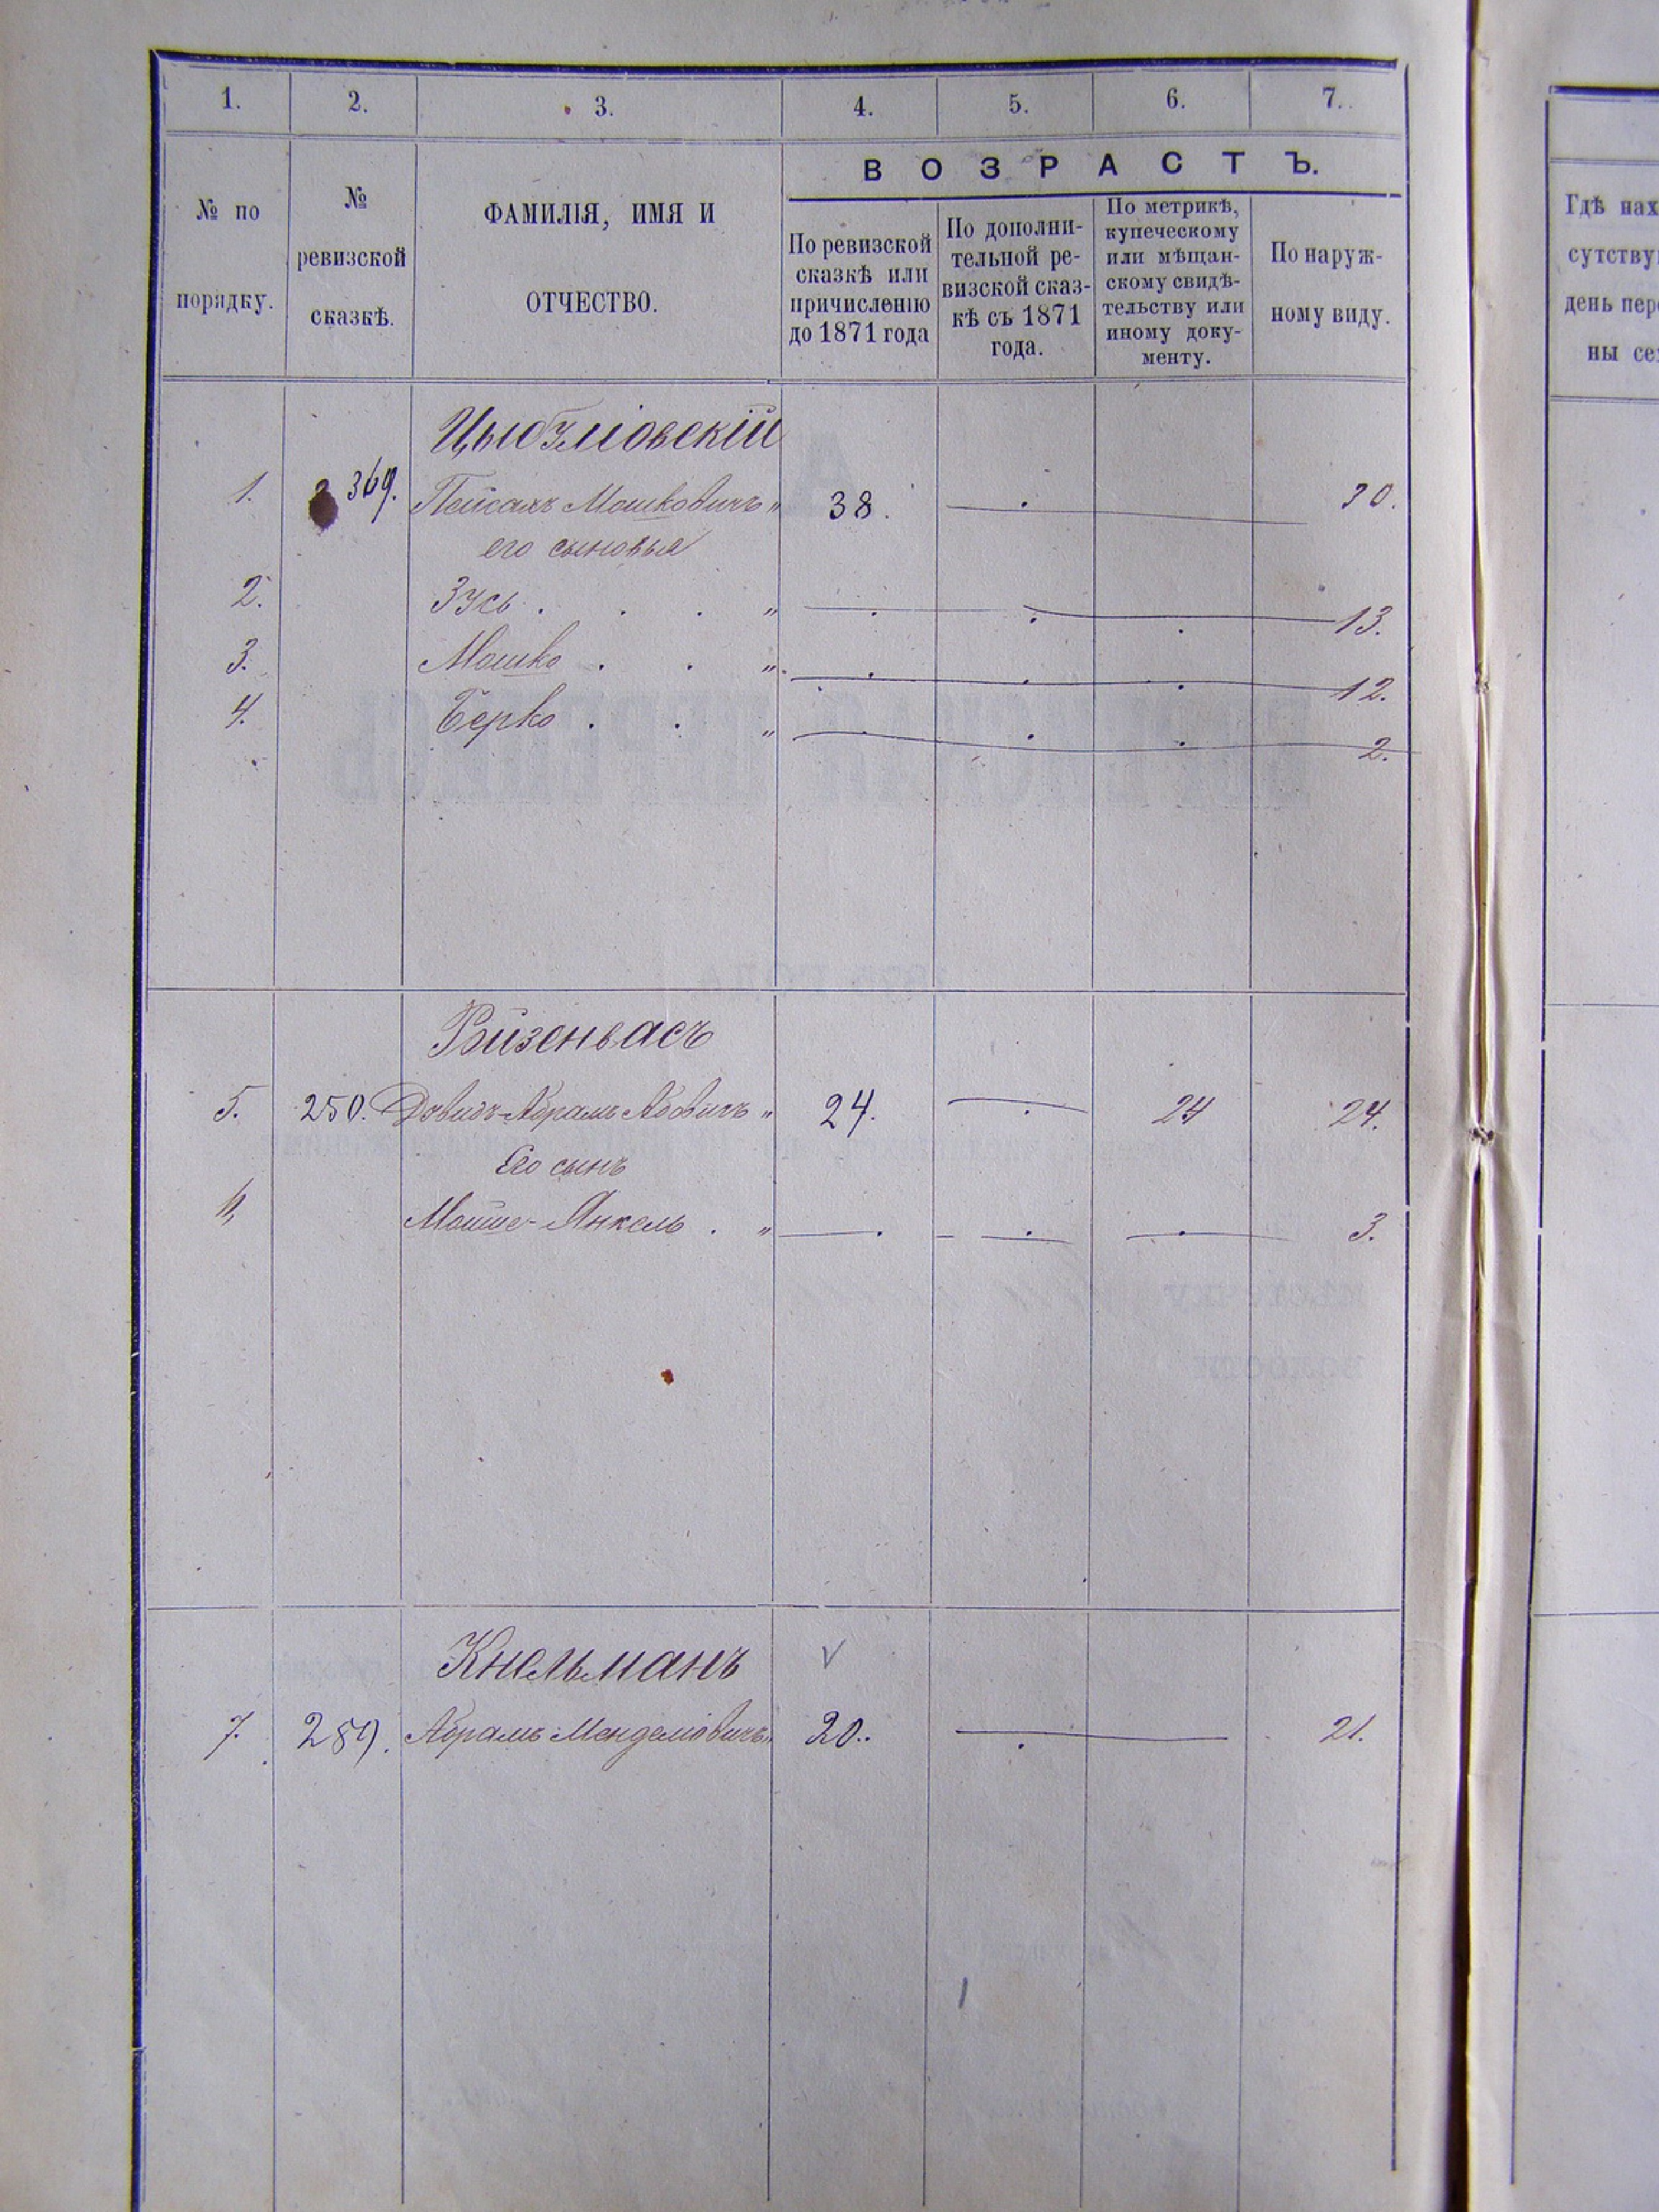 1. 2. 3. 4. 5. 6. 7.
ВОЗРАСТЪ.
№ по
порядку.
№
ревизской
сказкѣ.
ФАМИЛІЯ, ИМЯ И
ОТЧЕСТВО.
По ревизской
сказкѣ или
причисленію
до 1871 года
По дополни-
тельной ре-
визской сказ-
кѣ съ 1871
года.
По метрикѣ,
купеческому
или мѣщан-
скому свидѣ-
тельству или
иному доку-
менту.
По наруж-
ному виду.
1. 369. Пейсахъ Мошковичъ " 38. 30.
его сыновья
2. Зусь . . . " 13.
3. Мошко . . " 12.
4. Берко . . " 2.
5. 250. Довидъ-Абрамъ Абовичъ " 24. 24 24.
Его сынъ
Мойше-Янкель . " 3.
Кнельманъ
7. 289. Абрамъ Менделіовичъ " 20. 21.
Гдѣ нах
сутству
день пер
ны се